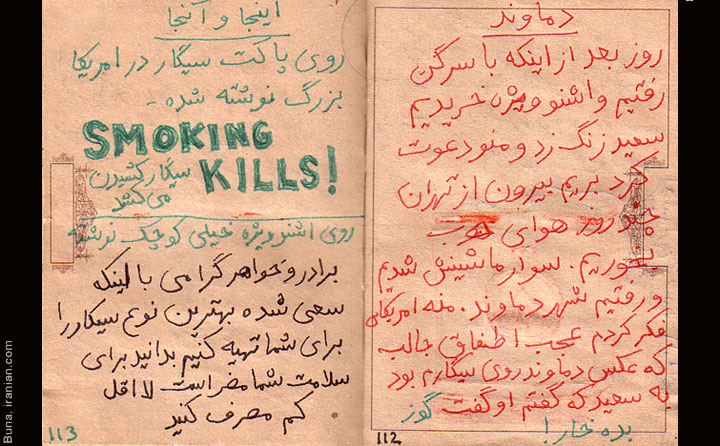 دماوند
روز بعد از اینکه با سرگن
رفتیم و اشنو ویژه خریدیم
سعید زنگ زد و منو دعوت
کرد بریم بیرون از تهران
چند روز هوای خوب
بخوریم. سوار ماشینش شدیم
و رفتیم شهر دماوند. منه امریکائی
فکر کردم عجب اطفاقی جالب
که عکس دماوند روی سیگارم بود
به سعید که گفتم او گفت گوز
بده بخارا
112
اینجا و آنجا
روی پاکت سیگار در امریکا
بزرگ نوشته شده -
SMOKING
KILLS!
سیگار کشیدن
می کشد
روی اشنو ویژه خیلی کوچک نوشته
برادر و خواهر گرامی با اینکه
سعی شده بهترین نوع سیگار را
برای شما تهیه کنیم بدانید برای
سلامت شما مضر است لااقل
کم مصرف کنید
113
Buna, iranian.com